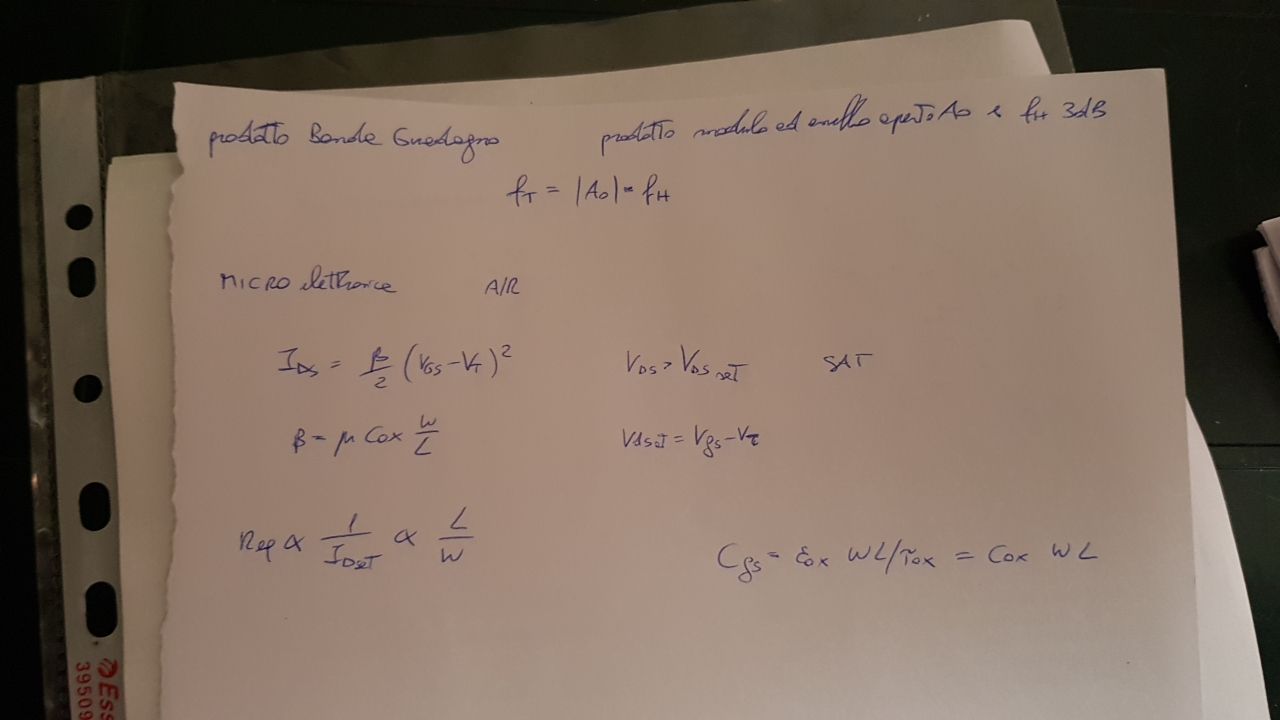 prodotto Banda Guadagno prodotto modulo ad anello aperto A0 e fH 3dB
fT = |A0| · fH
MICRO elettronica A/R
IDS = β/2 (VGS - VT)² VDS > VDS sat SAT
β = μ Cox W/L Vdsat = Vgs - Vτ
Req ∝ 1/IDsat ∝ L/W
Cgs = εox WL/τox = Cox WL
Ess
39509